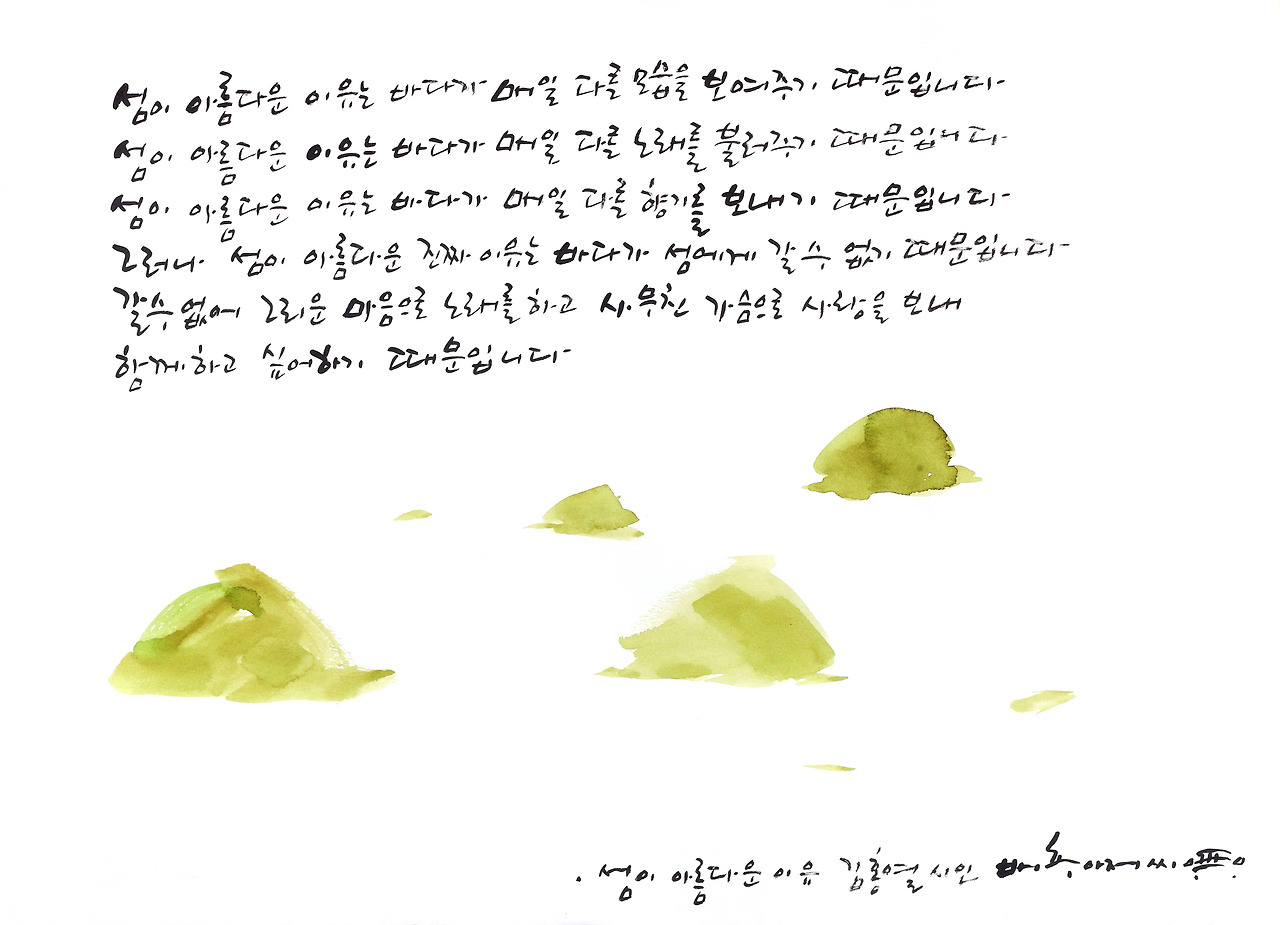 섬이 아름다운 이유는 바다가 매일 다른 모습을 보여주기 때문입니다
섬이 아름다운 이유는 바다가 매일 다른 노래를 불러주기 때문입니다
섬이 아름다운 이유는 바다가 매일 다른 향기를 보내기 때문입니다
그러나 섬이 아름다운 진짜 이유는 바다가 섬에게 갈 수 없기 때문입니다
갈 수 없에 그리운 마음으로 노래를 하고 사무친 가슴으로 사랑을 보내
함께 하고 싶어하기 때문입니다
. 섬이 아름다운 이유 김홍열 시인